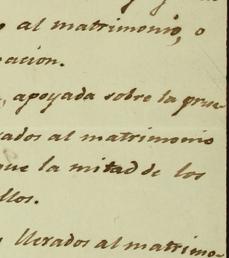 al matrimonio, o
acion.
, apoyada sobre la pru-
ados al matrimonio
que la mitad de los
llos.
, llevados al matrimo-